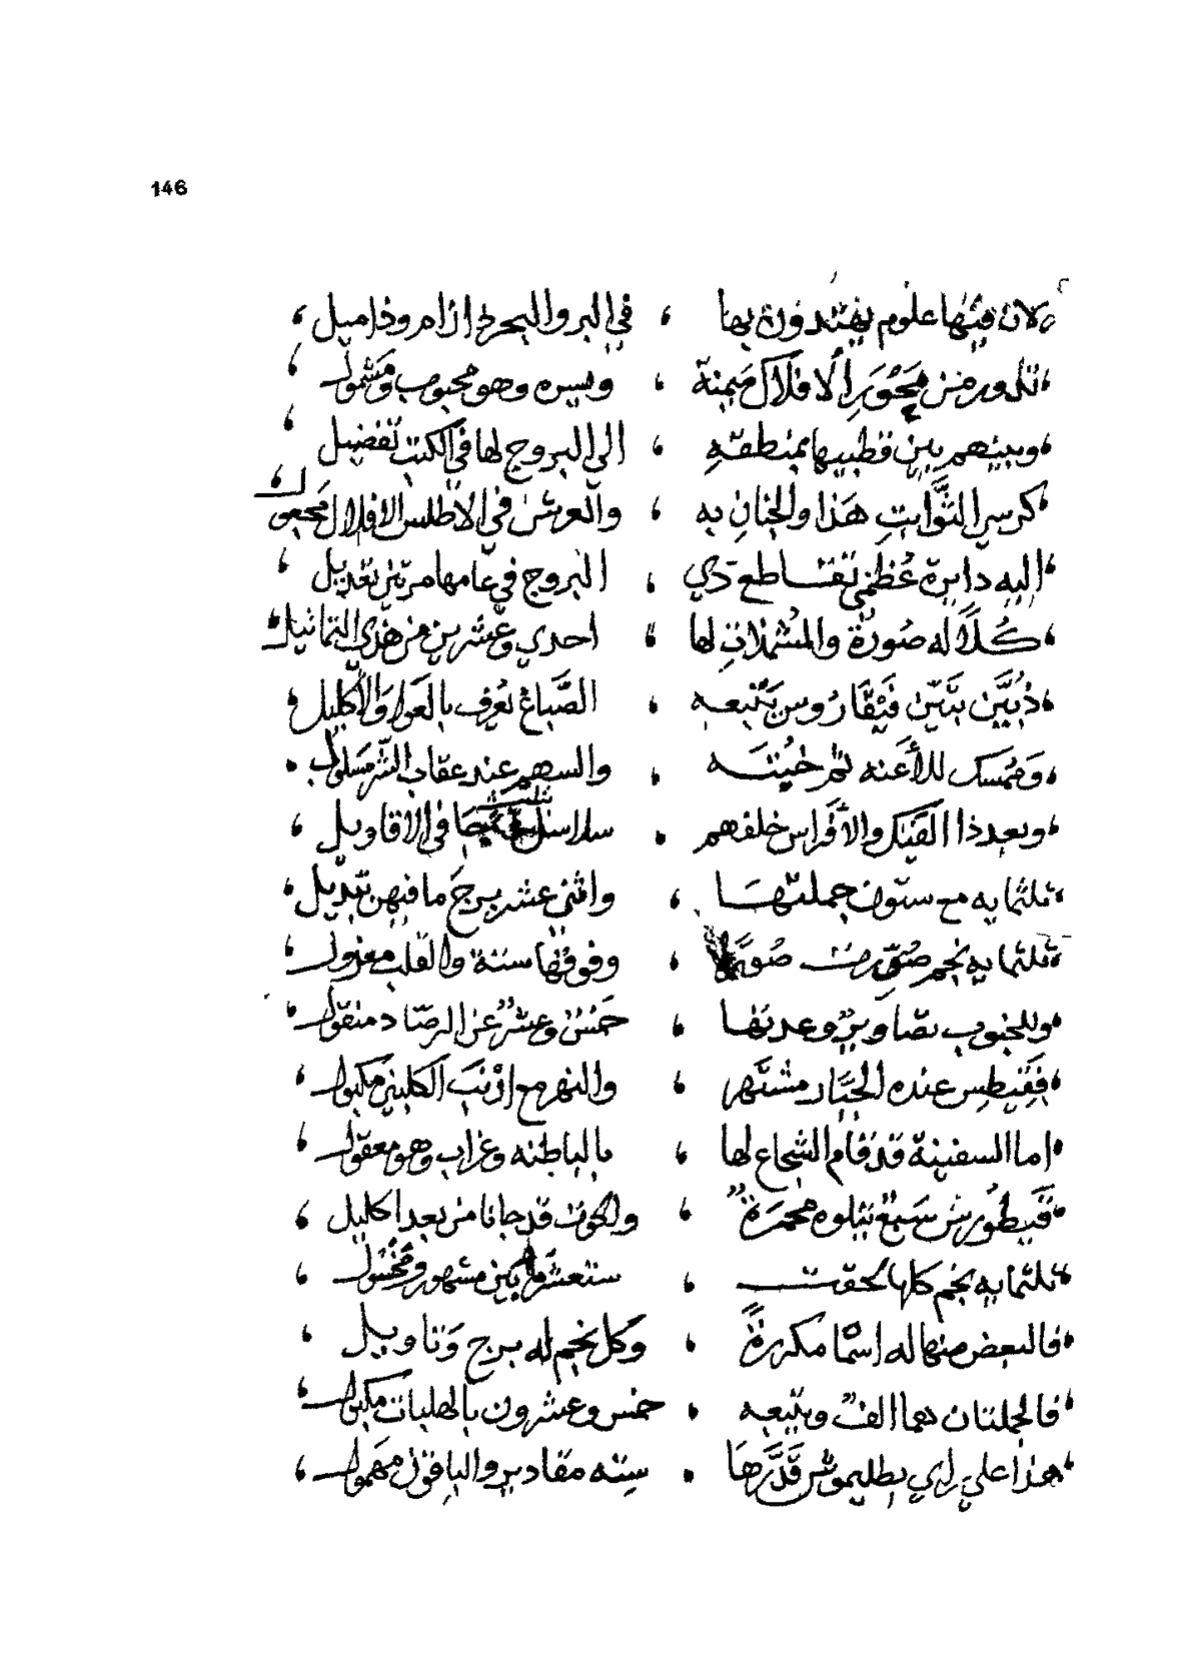 146
لان فيها علوم يهتدون بها ، في البر والبحر اذا زام وذاميل ،
تدور من محور الافلاك ميمنة ، ويسره وهو محبوب ومشمول ،
وبينهم بين قطبيها بمنطقه ، الى البروج لها في الكتب تفضيل ،
كرسي الثوابت هذا والجنان به ، والعرش في الاطلس الافلاك مجعول ،
اليه دايرة عظمى تقاطع ذي ، البروج في عامها مرتين تعديل ،
كلا له صورة والمشملات لها ، احدي وعشرين من هذي التماثيل ،
ذبين بتنين فيقاروس يتبعه ، الصباغ تعرف بالعوا والاكليل ،
وممسك للاعنه ثم حيته ، والسهم عند عقاب النسر مسلول .
وبعد ذا والافراس خلفهم . جا في الاقاويل ،
ثلثمايه مع ستون جملتها ، واثني عشر برج ما فيهن تبديل ،
ثلثمايه نجم صورت ، وفوقها ستة والقلب معزول ،
وللجنوب تصاوير وعدتها ، خمس وعشر عن الرصاد منقول ،
فقيطس عنده الجبار مشتهر ، والنهر مع ارنب الكلبين مكبول ،
اما السفينة قد قام الشجاع لها ، بالباطنه وغراب وهو معقول ،
قنطورس سبع يتلوه مجمرة ، والحوت قد جانا من بعد اكليل ،
ثلثمايه نجم كلها لحقت ، ستعشر ما بين مشهور ومخسول ،
فالبعض منها له اسما مكررة ، وكل نجم له برج وتاويل ،
فالجملتان هما الف ويتبعه ، خمس وعشرون بالهلبات مكبول ،
هذا علي راي بطليموس قدرها . سته مقادير والباقون مهمول ،